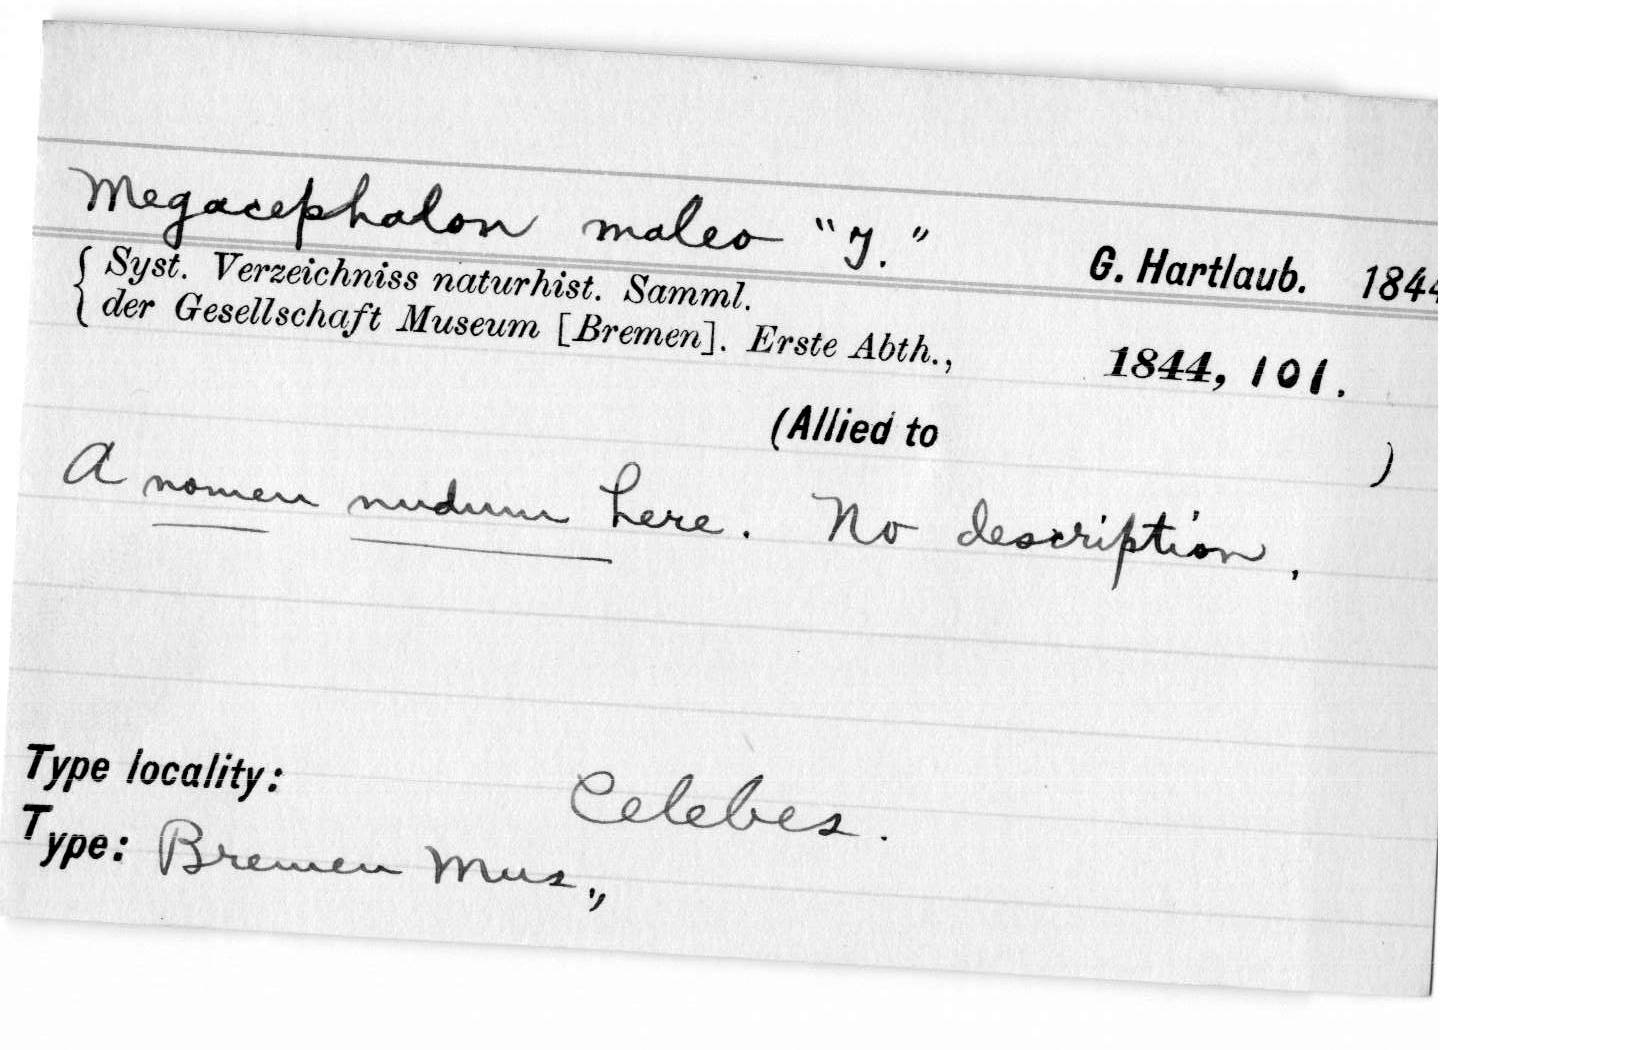 Megacephalon maleo "J." G. Hartlaub. 1844
Syst. Verzeichniss naturhist. Samml.
der Gesellschaft Museum [Bremen]. Erste Abth., 1844, 101.
(Allied to )
A nomen nudum here. No description.
Type locality: Celebes.
Type: Bremen Mus.,